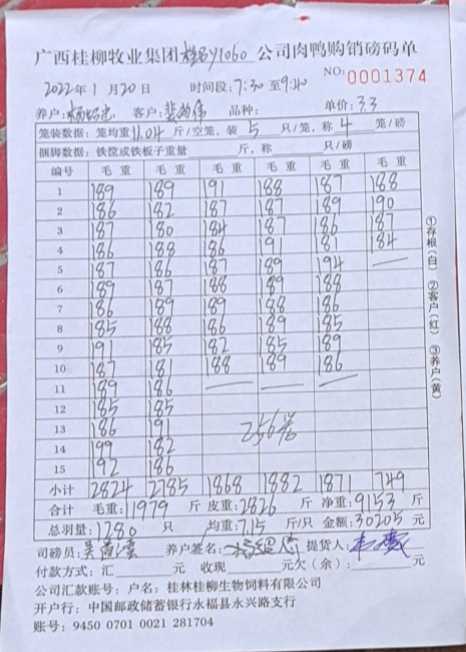 广西桂柳牧业集团 Y1060 公司肉鸭购销磅码单
NO:0001374
2022年1月20日 时间段:7:30至9:40
养户: 客户: 品种: 单价:3.3
笼装数据:笼均重11.04斤/空笼,装5只/笼,称4笼/磅
捆脚数据:铁筐或铁板子重量 斤,称 只/磅
编号 毛重 毛重 毛重 毛重 毛重 毛重
1 189 189 191 188 187 188
2 186 182 187 187 189 190
3 187 180 184 187 186 187
4 186 188 186 191 181 184
5 187 186 187 189 194 —
6 189 187 188 189 188
7 186 189 189 188 186
8 185 188 186 189 185
9 191 185 182 185 189
10 187 181 188 189 186
11 189 186 — — —
12 185 185
13 186 191 256笼
14 199 182
15 192 186
小计 2824 2785 1868 1882 1871 749
合计 毛重:11979斤 皮重:2826斤 净重:9153斤
总羽量:1280只 均重:7.15斤/只 金额:30205元
司磅员: 养户签名: 提货人:
付款方式:汇 元 收现 元欠(余): 元
公司汇款账号:户名:桂林桂柳生物饲料有限公司
开户行:中国邮政储蓄银行永福县永兴路支行
账号:9450 0701 0021 281704
①存根(白) ②客户(红) ③养户(黄)